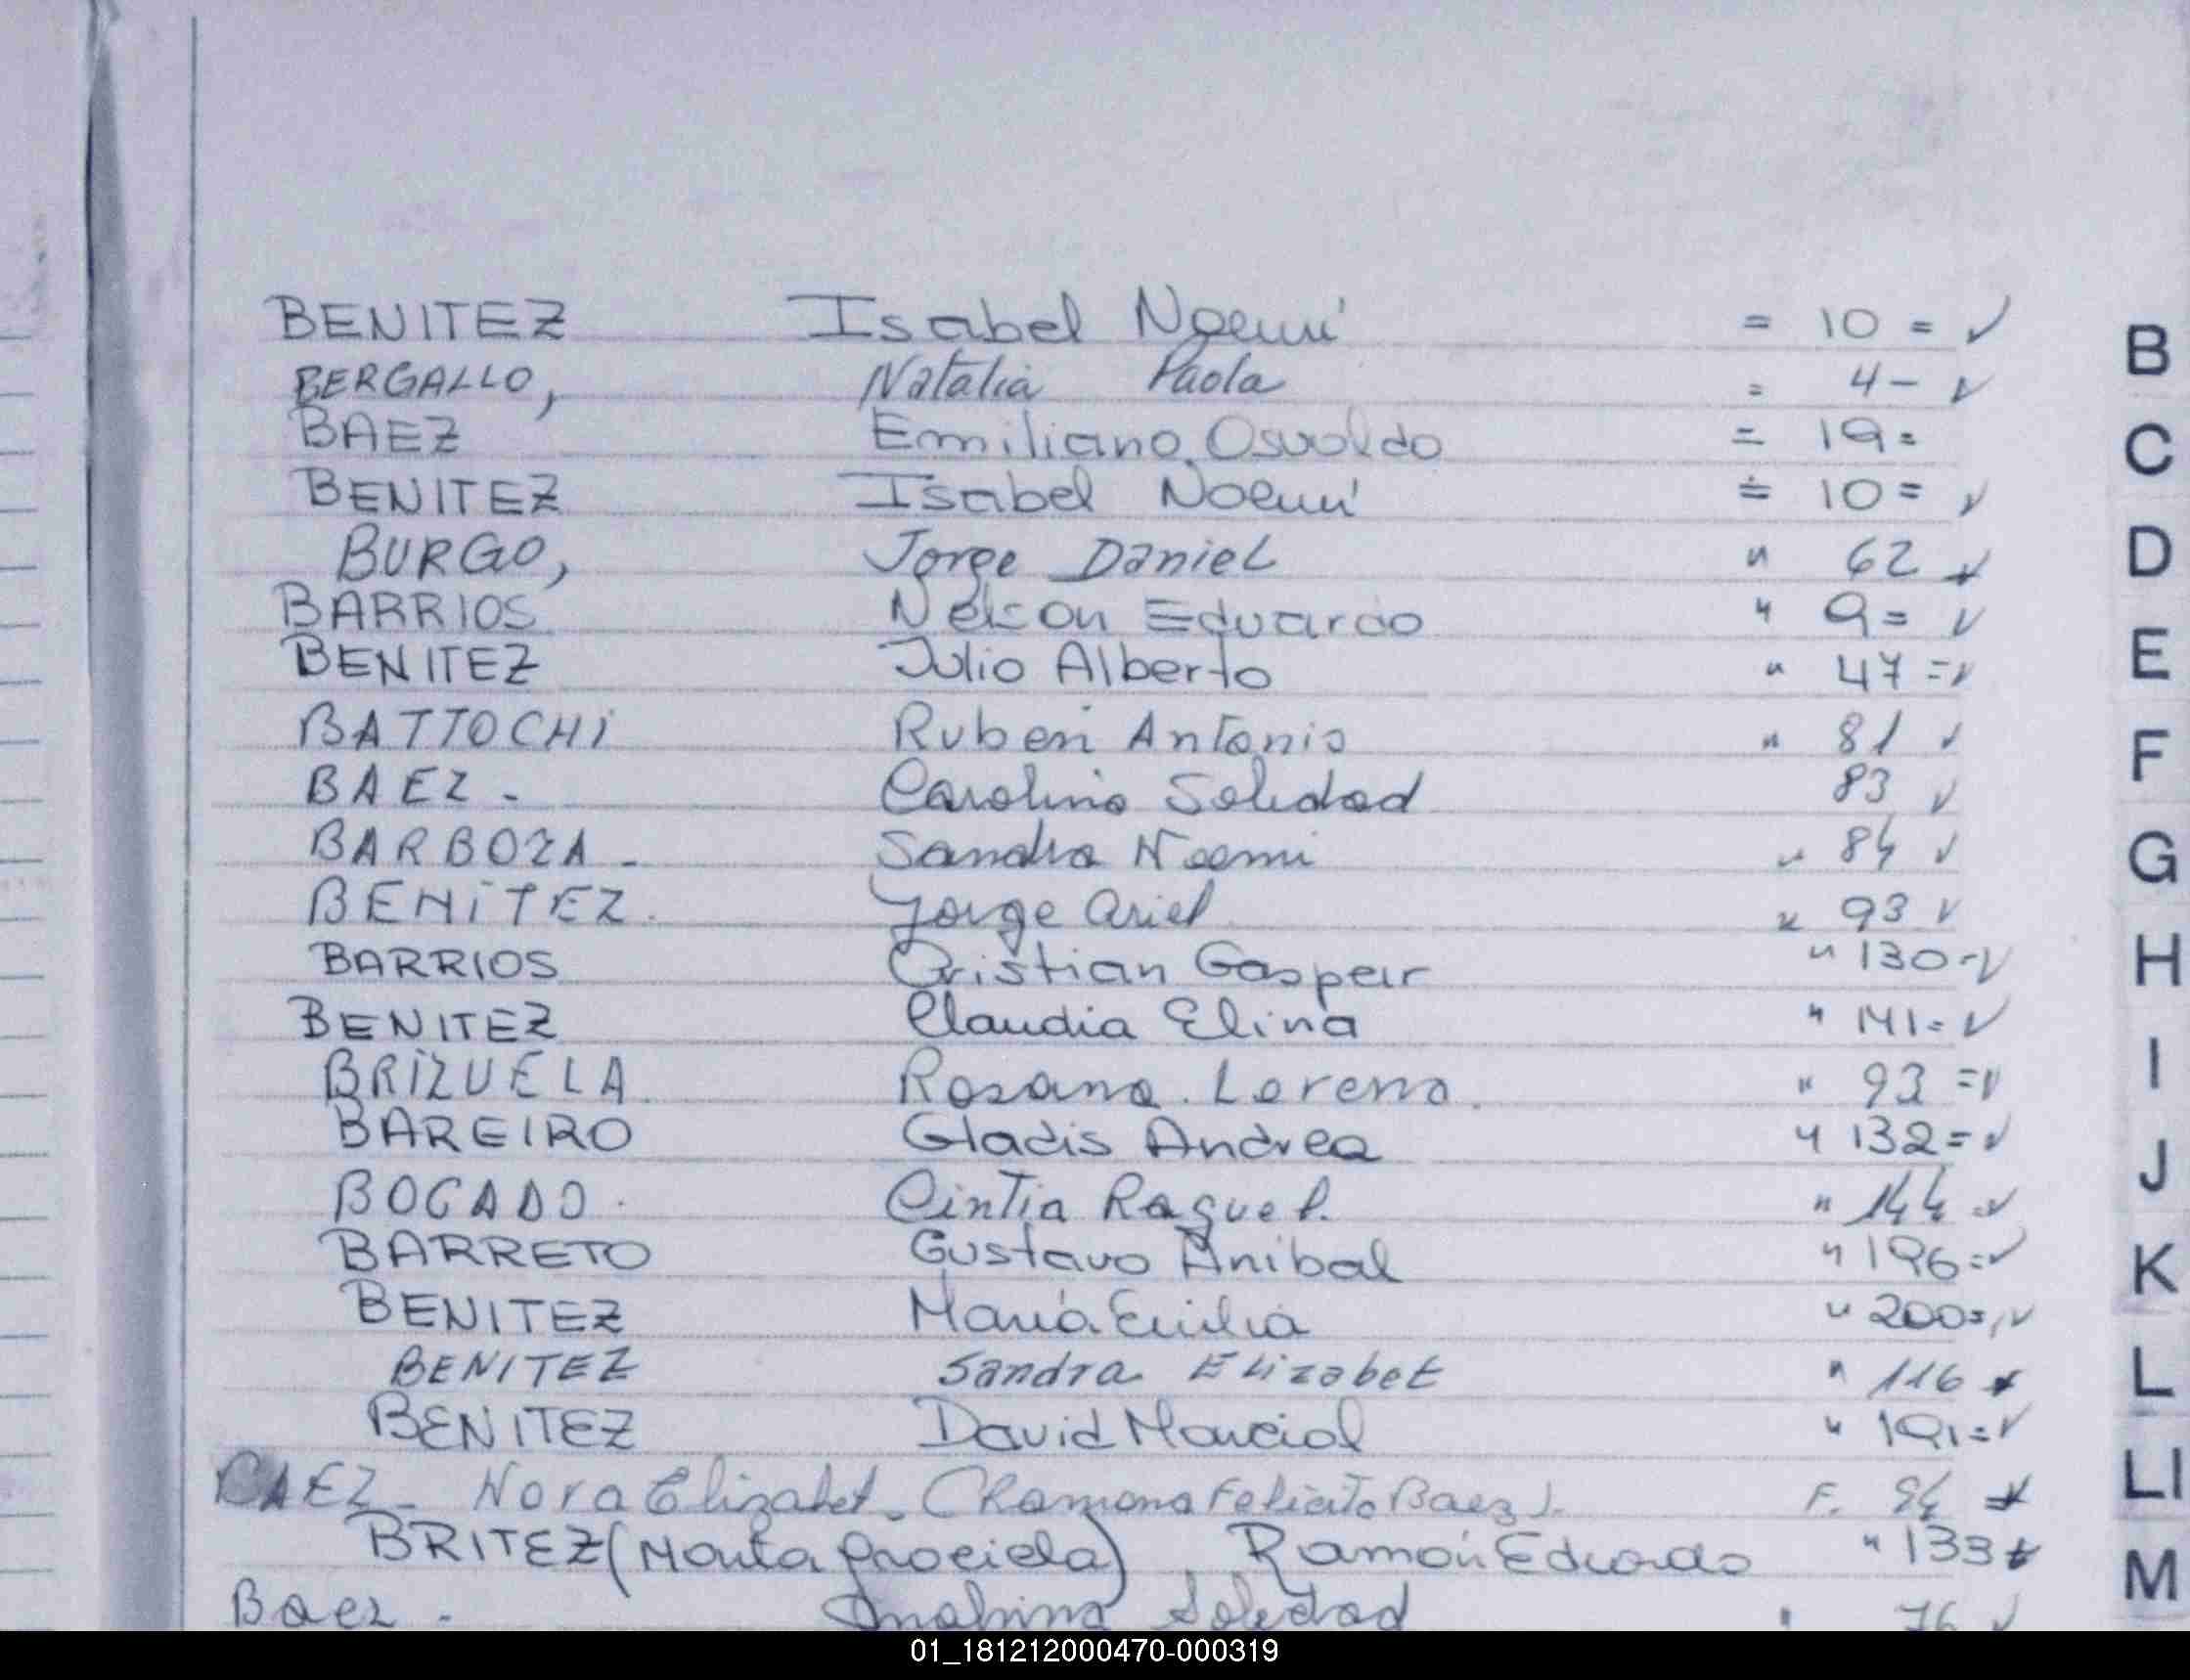 BENITEZ Isabel Noemí = 10 = ✓
BERGALLO, Natalia Paola = 4 - ✓
BAEZ Emiliano Osvaldo = 19 =
BENITEZ Isabel Noemí = 10 = ✓
BURGO, Jorge Daniel " 62 ✓
BARRIOS Nelson Eduardo " 9 = ✓
BENITEZ Julio Alberto " 47 = ✓
BATTOCHI Ruben Antonio " 81 ✓
BAEZ - Carolina Soledad 83 ✓
BARBOZA - Sandra Noemi " 84 ✓
BENITEZ. Jorge Ariel " 93 ✓
BARRIOS Cristian Gaspar " 130 - ✓
BENITEZ Claudia Elina " 141 = ✓
BRIZUELA Rosana Lorena " 93 = ✓
BAREIRO Gladis Andrea " 132 = ✓
BOGADO. Cintia Raquel. " 144 ✓
BARRETO Gustavo Anibal " 196 = ✓
BENITEZ María Emilia " 200 = ✓
BENITEZ Sandra Elizabet " 116 ✓
BENITEZ David Marcial " 191 = ✓
BAEZ - Nora Elizabet - (Ramona Felicita Baez). F. 94 ✓
BRITEZ (Monta Graciela) Ramón Eduardo " 133 ✓
Baez - Soledad 76 ✓
B
C
D
E
F
G
H
I
J
K
L
Ll
M
01_181212000470-000319